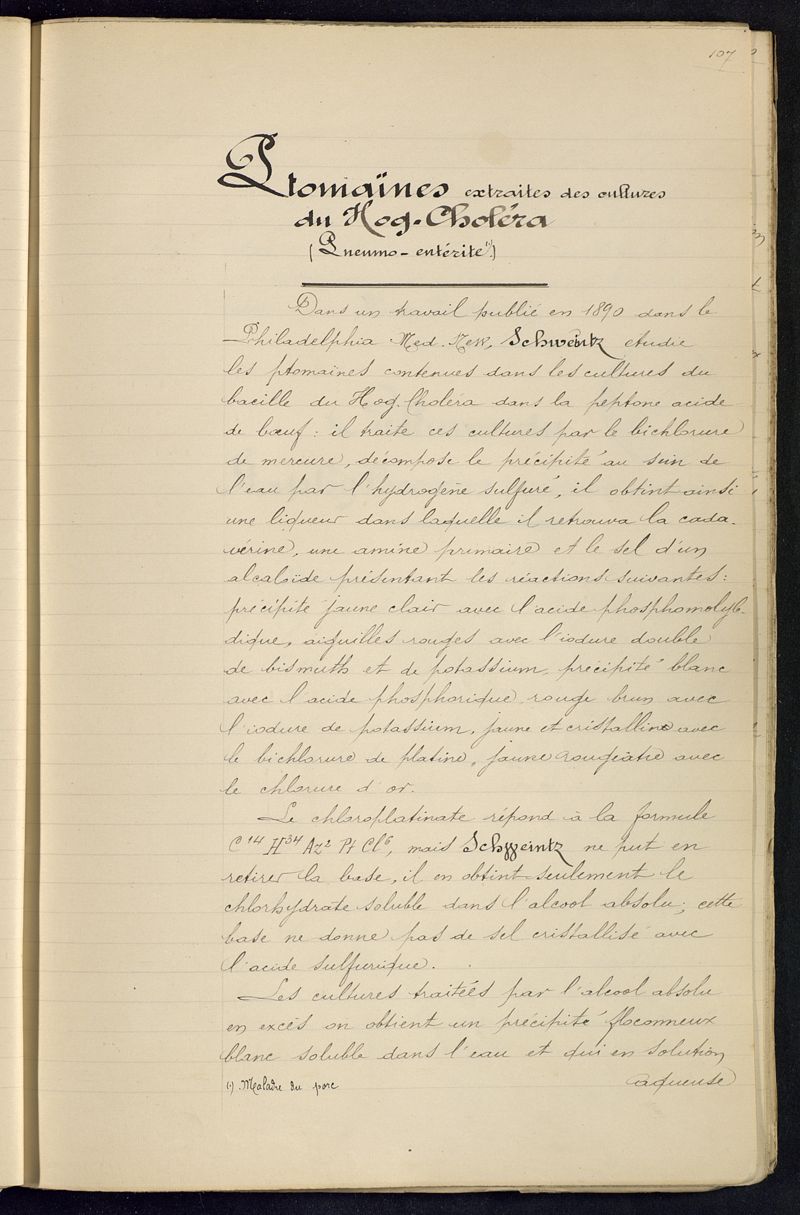 107
Ptomaïnes extraites des cultures
du Hog-Choléra
(Pneumo-entérite (1))
Dans un travail publié en 1890 dans le
Philadelphia Med. Schweintz étudie
les ptomaïnes contenues dans les cultures du
bacille du Hog-Choléra dans la peptone acide
de bœuf : il traite ces cultures par le bichlorure
de mercure, décompose le précipité au sein de
l'eau par l'hydrogène sulfuré, il obtint ainsi
une liqueur dans laquelle il retrouva la cada-
vérine, une amine primaire et le sel d'un
alcaloïde présentant les réactions suivantes :
précipité jaune clair avec l'acide phosphomolyb-
dique, aiguilles rouges avec l'iodure double
de bismuth et de potassium, précipité blanc
avec l'acide phosphorique, rouge brun avec
l'iodure de potassium, jaune et cristalline avec
le bichlorure de platine, jaune rougeâtre avec
le chlorure d'or.
Le chloroplatinate répond à la formule
C¹⁴ H³⁴ Az² Pt Cl⁶, mais Schweintz ne put en
retirer la base, il en obtint seulement le
chlorhydrate soluble dans l'alcool absolu ; cette
base ne donne pas de sel cristallisé avec
l'acide sulfurique.
Les cultures traitées par l'alcool absolu
en excès on obtient un précipité floconneux
blanc soluble dans l'eau et qui en solution
(1) Maladie du porc
aqueuse